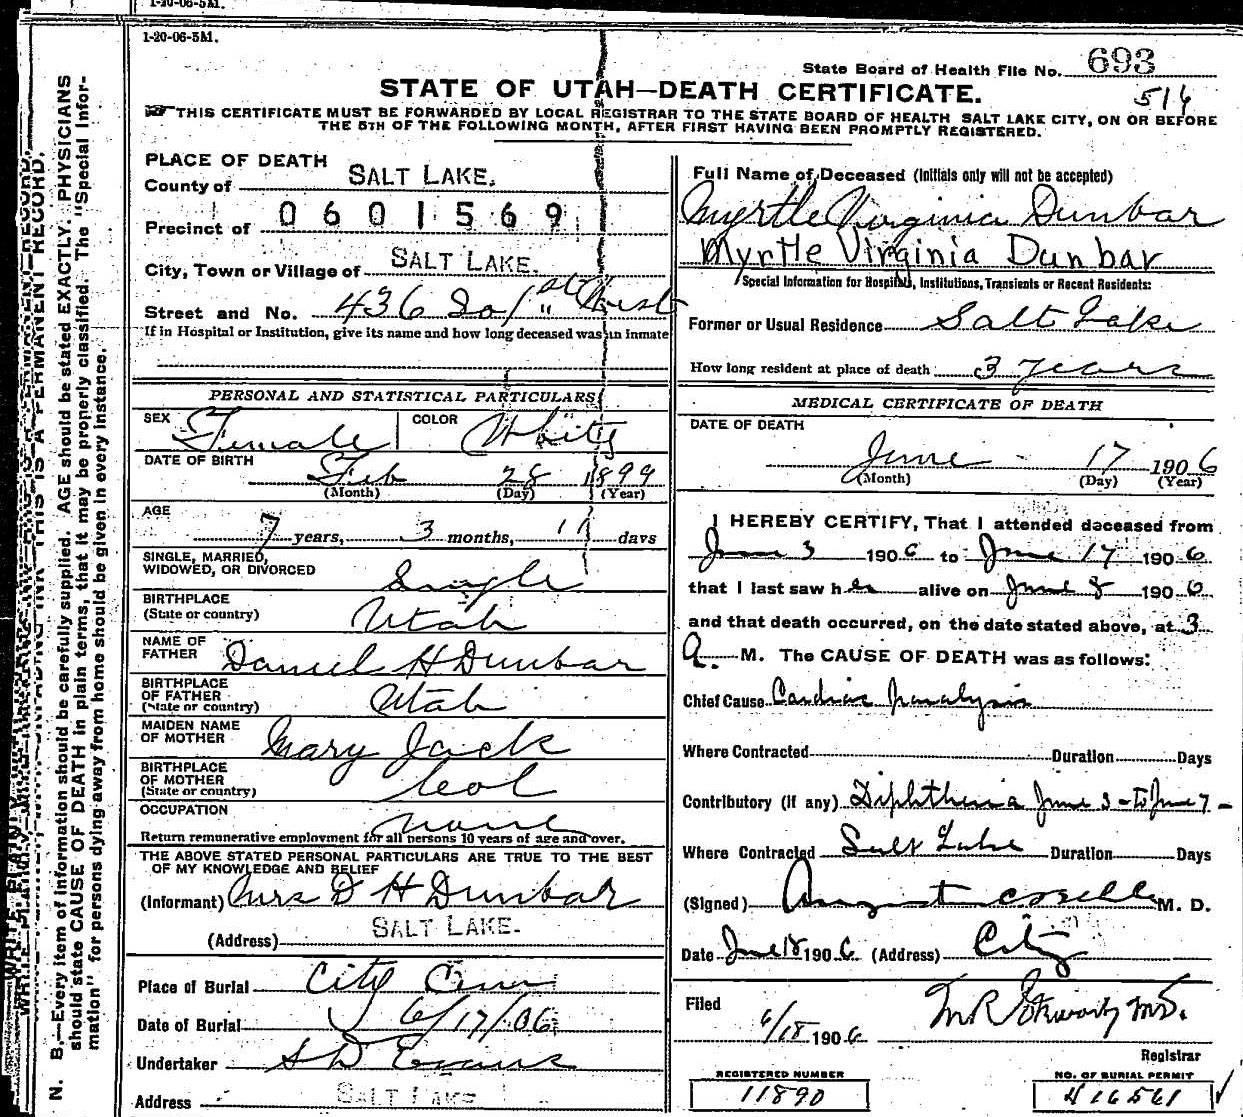 1-20-06-5M.
1-20-06-5M.
State Board of Health File No. 693
516
STATE OF UTAH—DEATH CERTIFICATE.
THIS CERTIFICATE MUST BE FORWARDED BY LOCAL REGISTRAR TO THE STATE BOARD OF HEALTH SALT LAKE CITY, ON OR BEFORE
THE 5TH OF THE FOLLOWING MONTH, AFTER FIRST HAVING BEEN PROMPTLY REGISTERED.
PLACE OF DEATH
County of SALT LAKE.
Precinct of 0601569
City, Town or Village of SALT LAKE.
Street and No. 436 So 1st West
If in Hospital or Institution, give its name and how long deceased was an inmate
PERSONAL AND STATISTICAL PARTICULARS
SEX Female COLOR White
DATE OF BIRTH Feb 28 1899
(Month) (Day) (Year)
AGE
7 years, 3 months, 11 days
SINGLE, MARRIED,
WIDOWED, OR DIVORCED Single
BIRTHPLACE
(State or country) Utah
NAME OF
FATHER Daniel H Dunbar
BIRTHPLACE
OF FATHER
(State or country) Utah
MAIDEN NAME
OF MOTHER Mary Jack
BIRTHPLACE
OF MOTHER
(State or country) Col
OCCUPATION none
Return remunerative employment for all persons 10 years of age and over.
THE ABOVE STATED PERSONAL PARTICULARS ARE TRUE TO THE BEST
OF MY KNOWLEDGE AND BELIEF
(Informant) Mrs D H Dunbar
(Address) SALT LAKE.
Place of Burial City Cem
Date of Burial 6/17/06
Undertaker S D Evans
Address SALT LAKE
Full Name of Deceased (Initials only will not be accepted)
Myrtle Virginia Dunbar
Myrtle Virginia Dunbar
Special Information for Hospitals, Institutions, Transients or Recent Residents:
Former or Usual Residence Salt Lake
How long resident at place of death 3 years
MEDICAL CERTIFICATE OF DEATH
DATE OF DEATH
June 17 1906
(Month) (Day) (Year)
I HEREBY CERTIFY, That I attended deceased from
June 3 1906 to June 17 1906
that I last saw her alive on June 8 1906
and that death occurred, on the date stated above, at 3
A. M. The CAUSE OF DEATH was as follows:
Chief Cause Cardiac paralysis
Where Contracted Duration Days
Contributory (if any) Diphtheria June 3 - to June 7 -
Where Contracted Salt Lake Duration Days
(Signed) August M. D.
Date June 18 1906 (Address) City
Filed
6/18 1906 M.D.
Registrar
REGISTERED NUMBER
11890
NO. OF BURIAL PERMIT
416561
N. B.—Every item of information should be carefully supplied. AGE should be stated EXACTLY. PHYSICIANS
should state CAUSE OF DEATH in plain terms, that it may be properly classified. The "Special Infor-
mation" for persons dying away from home should be given in every instance.